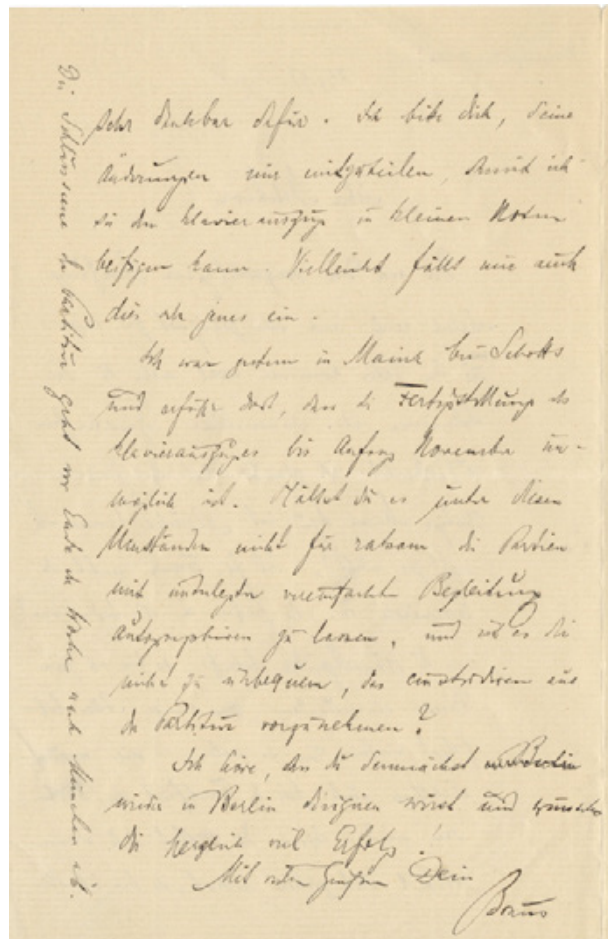 sehr dankbar dafür. Ich bitte dich, deine
Änderungen mir mitzuteilen, damit ich
sie dem Klavierauszug in kleinen Noten
beifügen kann. Vielleicht fällt mir auch
dies oder jenes ein.
Ich war gestern in Mainz bei Schotts
und erfuhr dort, dass die Fertigstellung des
Klavierauszuges bis Anfang November un-
möglich ist. Hältst du es unter diesen
Umständen nicht für ratsam die Partien
mit unterlegter vereinfachter Begleitung
autographieren zu lassen, und ist es dir
nicht zu unbequem, das einstudiren aus
der Partitur vorzunehmen?
Ich höre, dass du demnächst
wieder in Berlin dirigiren wirst und wünsche
dir herzlich viel Erfolg!
Mit besten Grüßen Dein
Die Schlussscene der Partitur geht vor Ende der Woche nach München ab.